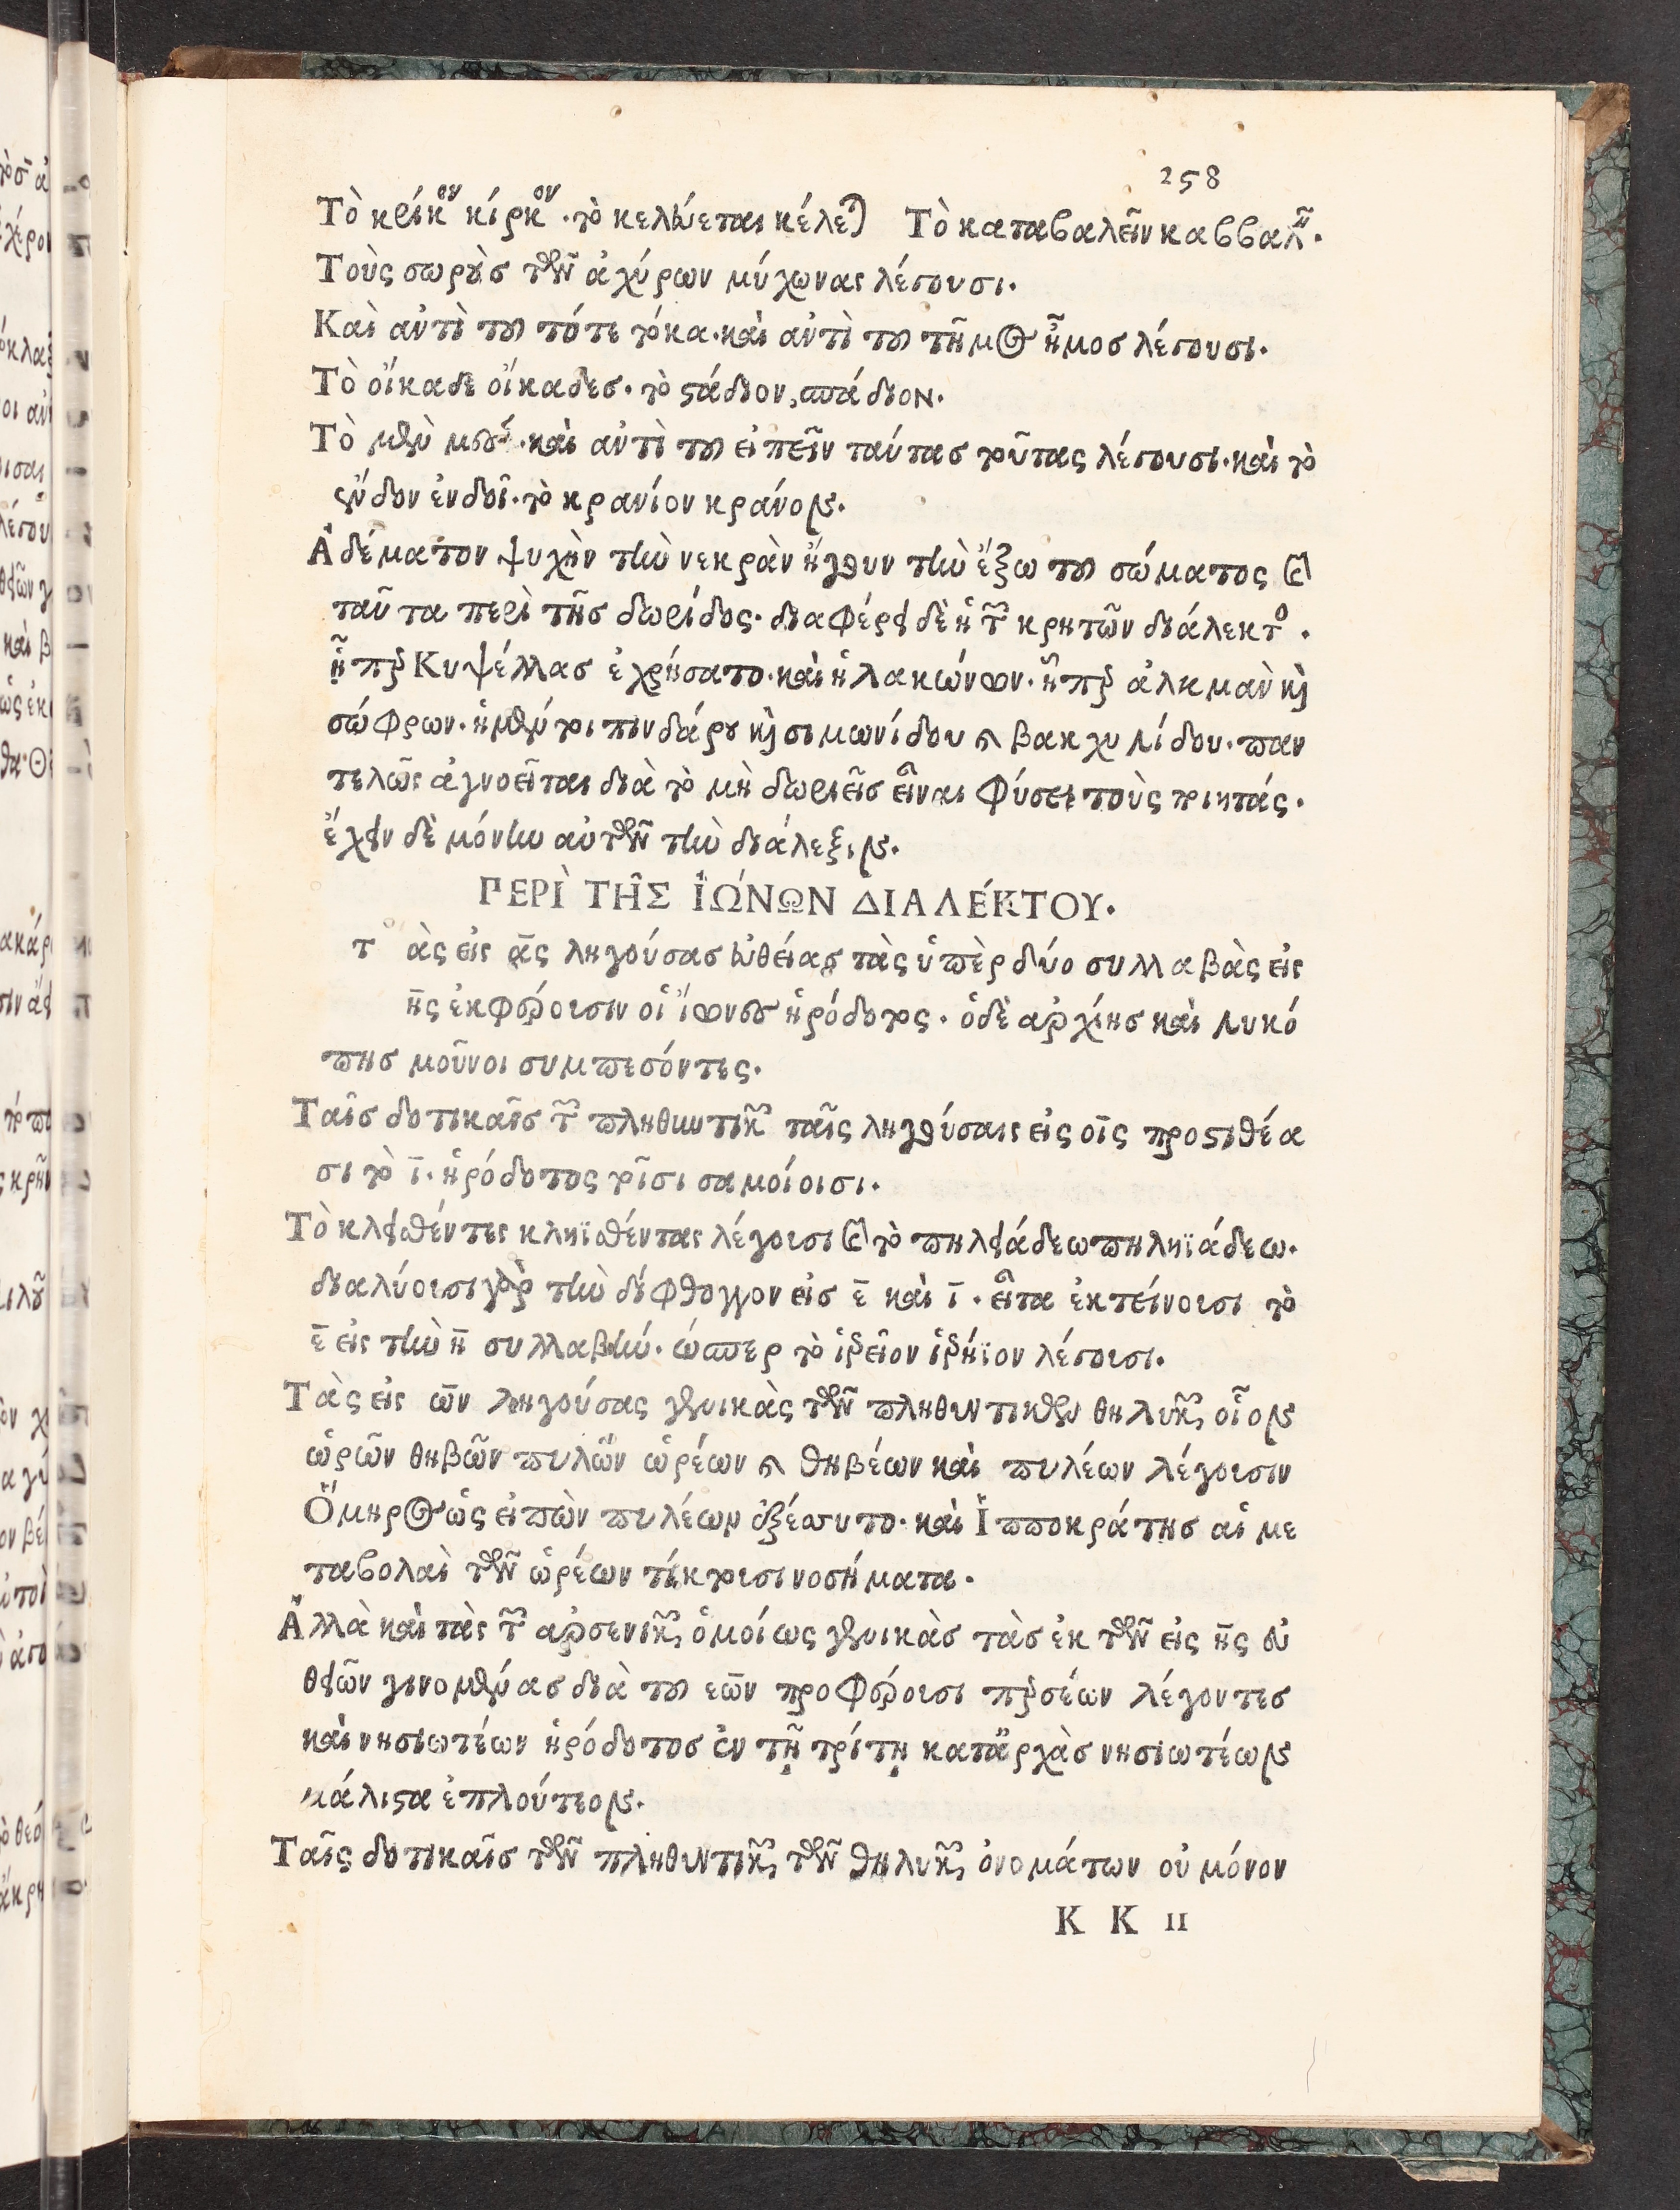 258
Τὸ κρίκον κίρκον. τὸ κελεύεται κέλεται Τὸ καταβαλεῖν καββαλῆν.
Τοὺς σωροὺσ τῶν ἀχύρων μύχωνας λέγουσι.
Καὶ αὐτὶ τοῦ τότε τόκα. καὶ αὐτὶ τοῦ τῆμος ἧμοσ λέγουσι.
Τὸ οἴκαδε οἴκαδεσ. τὸ στάδιον, σπάδιον.
Τὸ μὲν καὶ αὐτὶ τοῦ εἰπεῖν ταύτασ τοῦτας λέγουσι. καὶ τὸ
ἔνδον ἐνδοῖ. τὸ κρανίον κράνον.
Ἀδέματον ψυχὴν τὴν νεκρὰν ἤγουν τὴν ἔξω τοῦ σώματος καὶ
ταῦτα περὶ τῆσ δωρίδος. διαφέρει δὲ ἡ τῶν κρητῶν διάλεκτος.
ᾗ παρὰ Κυψέλλασ ἐχρήσατο. καὶ ἡ λακώνων. ᾗ παρὰ ἀλκμὰν καὶ
σώφρων. ἡ μέντοι πινδάρου καὶ σιμωνίδου καὶ βακχυλίδου. παν
τελῶς ἀγνοεῖται διὰ τὸ μὴ δωριεῖσ εἶναι φύσει τοὺς ποιητάς.
ἔχειν δὲ μόνην αὐτῶν τὴν διάλεξιν.
ΠΕΡῚ ΤΗ͂Σ ἸΏΝΩΝ ΔΙΑΛΈΚΤΟΥ.
τ ὰς εἰς ας ληγούσασ εὐθείας τὰς ὑπὲρ δύο συλλαβὰς εἰς
ης ἐκφέρουσιν οἱ ἴωνεσ ἡρόδοτος. ὁ δὲ αρχίησ καὶ λυκό
πησ μοῦνοι συμπεσόντες.
Ταῖσ δοτικαῖσ τῶν πληθυντικῶν ταῖς ληγούσαις εἰς οις προστιθέα
σι τὸ ῑ. ἡρόδοτος τοῖσι σαμοίοισι.
Τὸ κλειθέντες κληϊθέντας λέγουσι καὶ τὸ πηλειάδεω πηληϊάδεω.
διαλύουσι γὰρ τὴν δίφθογγον εἰσ ε̄ καὶ ῑ. εἶτα ἐκτείνουσι τὸ
ε̄ εἰς τὴν η̄ συλλαβήν. ὥσπερ τὸ ἱερεῖον ἱερήϊον λέγουσι.
Τὰς εἰς ων ληγούσας γενικὰς τῶν πληθυντικῶν θηλυκῶν, οἷον
ὡρῶν θηβῶν πυλῶν ὡρέων καὶ θηβέων καὶ πυλέων λέγουσιν
Ὅμηρος ὡς εἰπὼν πυλέων ἐξέσσυτο. καὶ Ἱπποκράτησ αἱ με
ταβολαὶ τῶν ὡρέων τίκτουσι νοσήματα.
Ἀλλὰ καὶ τὰς τῶν αρσενικῶν, ὁμοίως γενικὰσ τὰσ ἐκ τῶν εἰς ης εὐ
θειῶν γινομένας διὰ τοῦ εων προφέρουσι περσέων λέγοντεσ
καὶ νησιωτέων ἡρόδοτοσ ἐν τῇ τρίτῃ κατἀρχὰσ νησιωτέων
μάλιστα ἐπλούτεον.
Ταῖς δοτικαῖσ τῶν πληθυντικῶν, τῶν θηλυκῶν, ὀνομάτων οὐ μόνον
Κ Κ ΙΙ